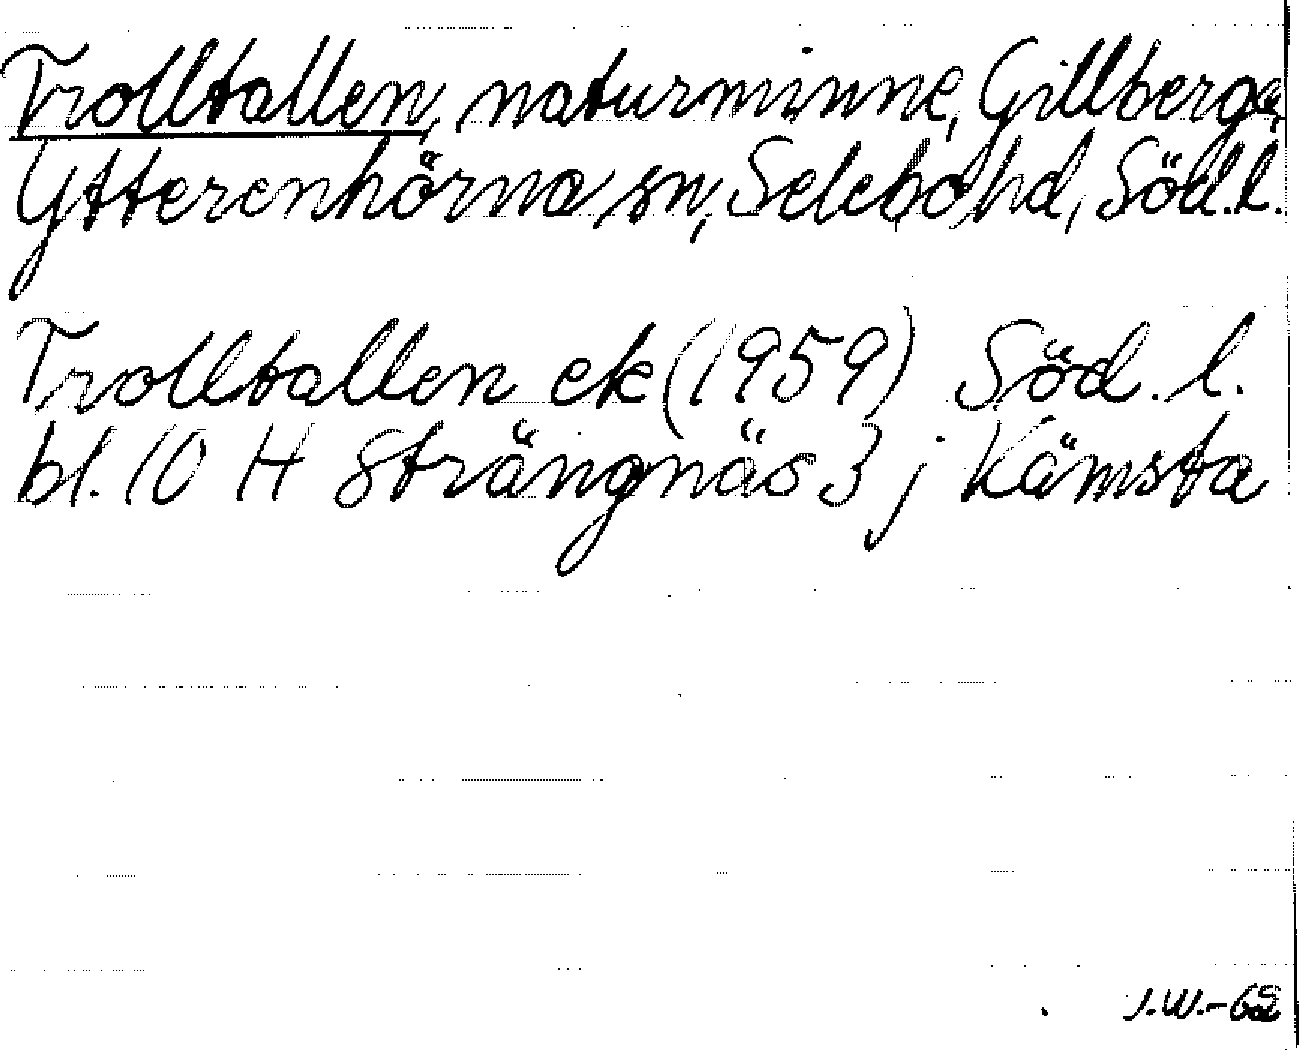 Trolltallen, naturminne, Gillberga,
Ytterenhörna sn, Selebo hd, Söd.l.
Trolltallen ek (1959) Söd. l.
bl. 10 H Strängnäs 3 j Kämsta
J.W.-68